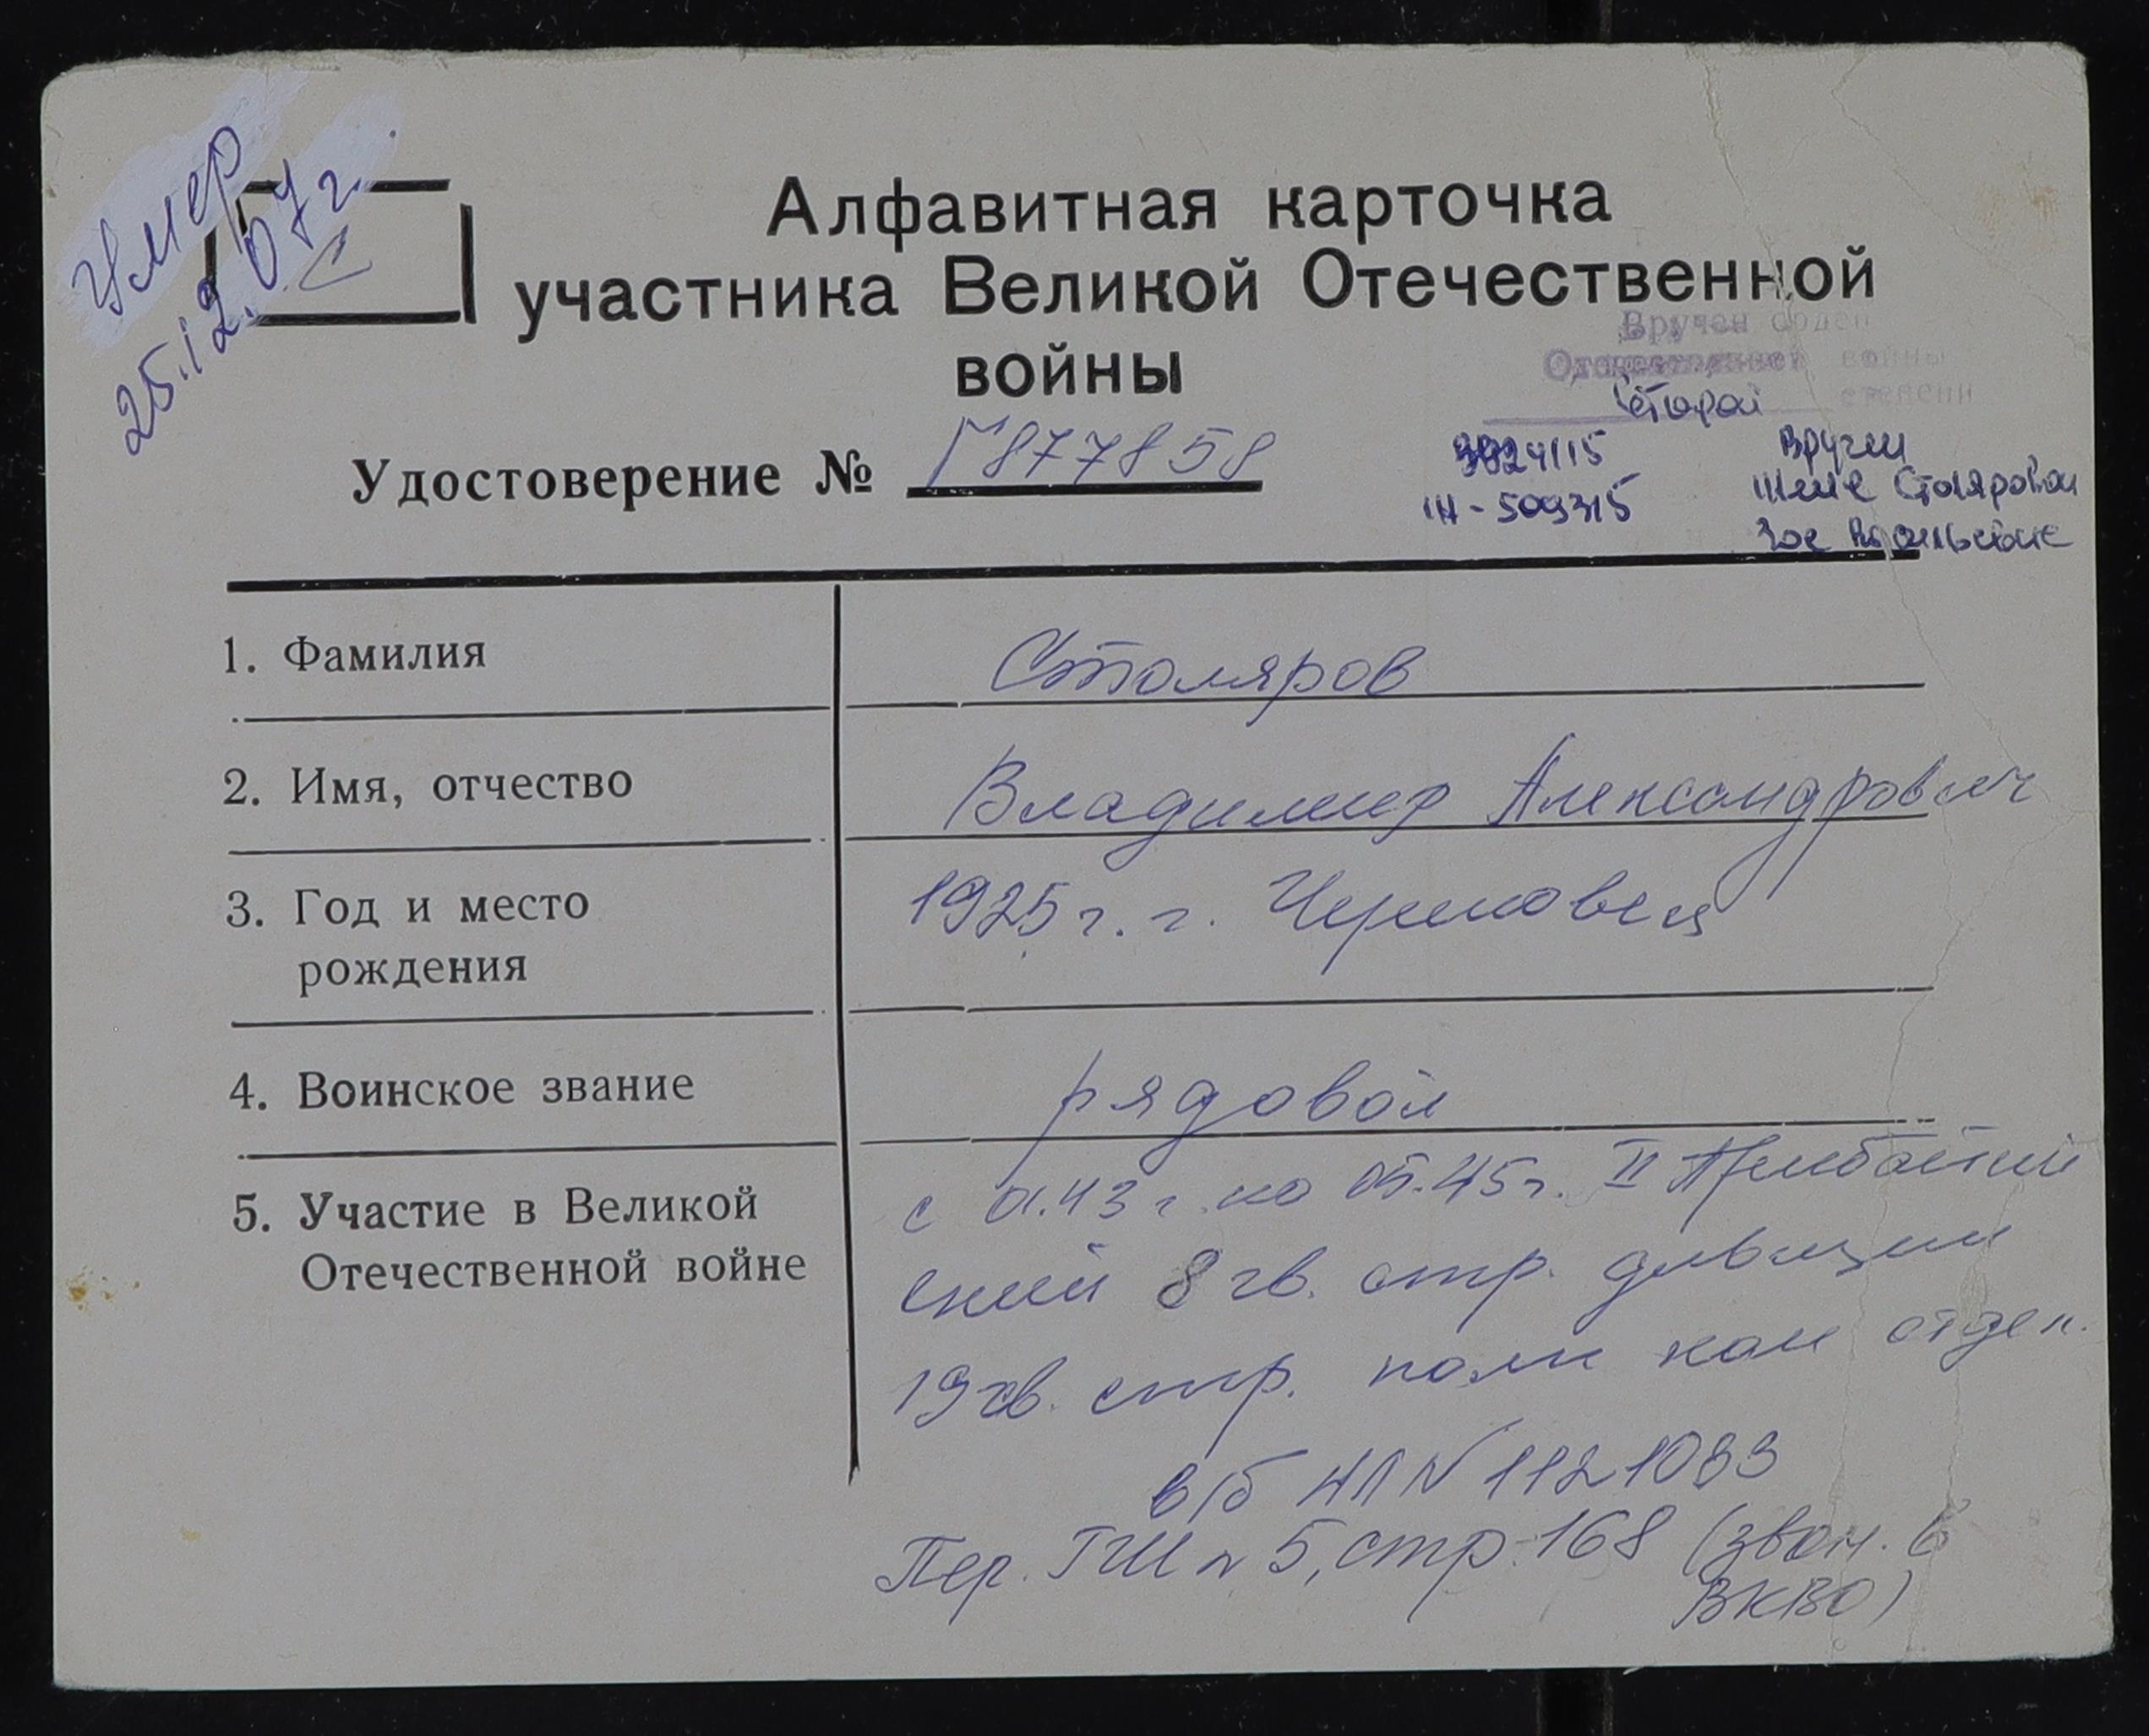 Умер
25.12.07 г.
С
Алфавитная карточка
участника Великой Отечественной
войны
Вручен орден
Отечественной войны
второй степени
Удостоверение № Г877858
3924115
Н - 509315
Вручен
жене Столяровой
Зое
1. Фамилия
Столяров
2. Имя, отчество
Владимир Александрович
3. Год и место
рождения
1925 г. г. Череповец
4. Воинское звание
рядовой
5. Участие в Великой
Отечественной войне
с 01.43 г. по 05.45 г. II Прибалтий
ский 8 гв. стр. дивизии
19 гв. стр. полк ком отдел.
в/б НЛ N 1121083
Пер. ГШ N 5, стр. 168 (звон. в
ВКВО)